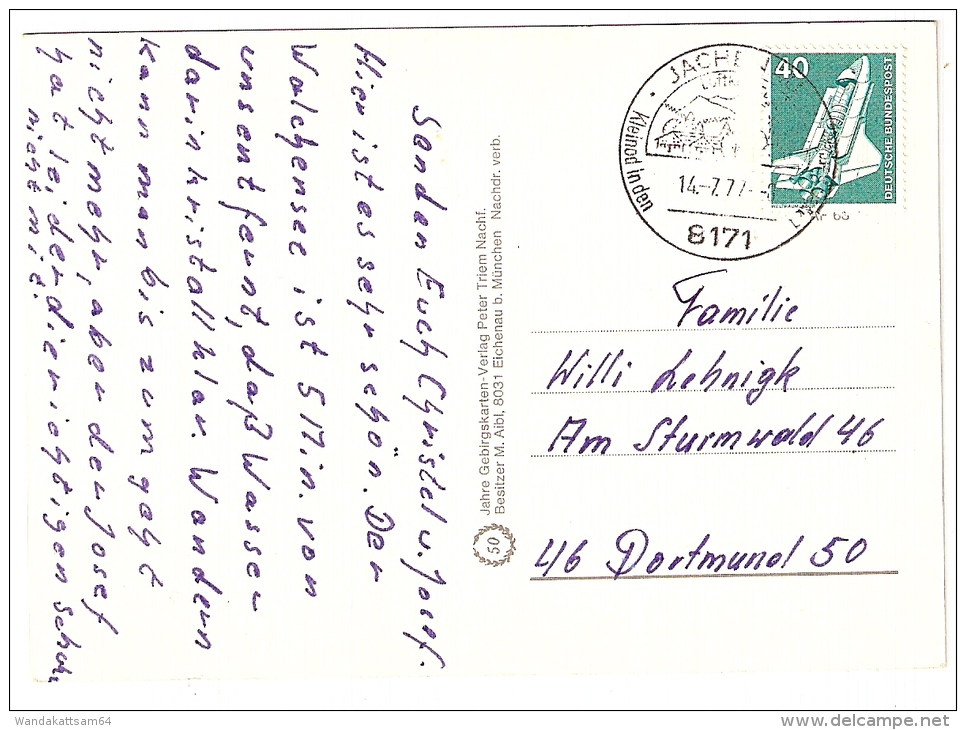 Senden Euch Christel u. Josef.
Hier ist es sehr schön. Der
Walchensee ist 5 Min. von
uns entfernt, daß Wasser
darin kristallklar. Wandern
kann man bis zum geht
nicht mehr, aber der Josef
hat leider die richtigen Schuhe
nicht mit.
50
Jahre Gebirgskarten-Verlag Peter Triem Nachf.
Besitzer M. Aibl, 8031 Eichenau b. München Nachdr. verb.
40
DEUTSCHE BUNDESPOST
JACHE
Kleinod in den
14.-7.77.-
8171
Familie
Willi Lehnigk
Am Sturmwald 46
46 Dortmund 50
Wandakattsam64
delcampe.net